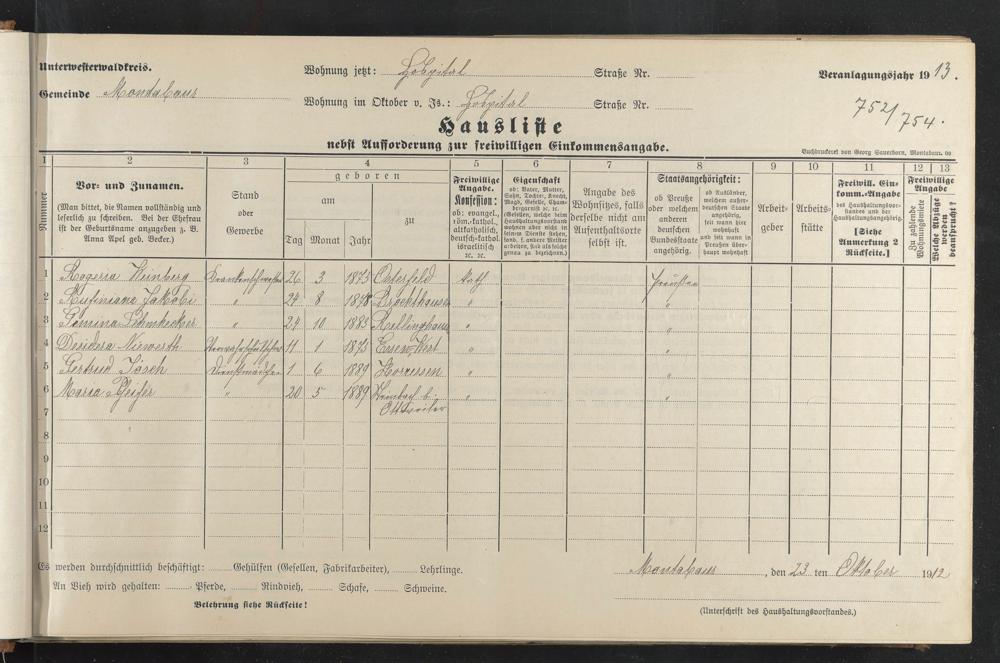 Unterwesterwaldkreis.
Gemeinde Montabaur
Wohnung jetzt: Hospital Straße Nr.
Wohnung im Oktober v. Js.: Hospital Straße Nr.
Veranlagungsjahr 1913.
752/754.
Hausliste
nebst Aufforderung zur freiwilligen Einkommensangabe.
Buchdruckerei von Georg Sauerborn, Montabaur.
1 2 3 4 5 6 7 8 9 10 11 12 13
Nummer
Vor- und Zunamen.
(Man bittet, die Namen vollständig und
leserlich zu schreiben. Bei der Ehefrau
ist der Geburtsname anzugeben z. B.
Anna Apel geb. Becker.)
Stand
oder
Gewerbe
geboren
am
zu
Tag Monat Jahr
Freiwillige
Angabe.
Konfession:
ob: evangel.,
röm.-kathol.,
altkatholisch,
deutsch-kathol.
israelitisch
ꝛc. ꝛc.
Eigenschaft
ob: Vater, Mutter,
Sohn, Tochter, Knecht,
Magd, Geselle, Cham-
bergarnist ꝛc. ꝛc.
Angabe des
Wohnsitzes, falls
derselbe nicht am
Aufenthaltsorte
selbst ist.
Staatsangehörigkeit:
ob Preuße
oder welchem
anderen
deutschen
Bundesstaate
angehörig.
ob Ausländer,
welchem außer-
deutschen Staate
angehörig,
seit wann hier
wohnhaft
und seit wann in
Preußen über-
haupt wohnhaft
Arbeit-
geber
Arbeits-
stätte
Freiwill. Ein-
komm.-Angabe
des Haushaltungsvor-
standes und der
Haushaltungsangehörig.
[Siehe
Anmerkung 2
Rückseite.]
Freiwillige
Angabe
Zu zahlende
Wohnungsmiete
Welche Abzüge
werden
beansprucht?
1 Rogeria Weinberg Krankenschwester 26 3 1875 Osterfeld Kath Preußen
2 Rufiniana Jakobi " 24 8 1878 Brockhausen " "
3 " 24 10 1883 Rellinghaus " "
4 Desidera Niewerth 11 1 1875 Essen-West " "
5 Gertrud Jösch Dienstmädchen 1 6 1889 Horressen " "
6 Maria " 20 5 1889 " "
7 Ottweiler
8
9
10
11
12
Es werden durchschnittlich beschäftigt: Gehülfen (Gesellen, Fabrikarbeiter), Lehrlinge.
An Vieh wird gehalten: Pferde, Rindvieh, Schafe, Schweine.
Belehrung siehe Rückseite!
Montabaur, den 23 ten Oktober 1912
(Unterschrift des Haushaltungsvorstandes.)